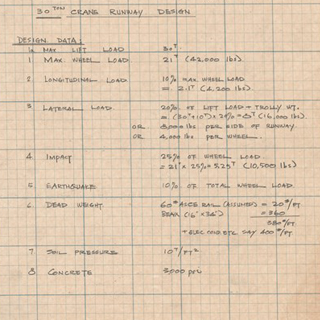 30 TON CRANE RUNWAY DESIGN
DESIGN DATA:
MAX LIFT LOAD 30T
1 MAX. WHEEL LOAD 21T (42,000 lbs)
2 LONGITUDINAL LOAD 10% MAX. WHEEL LOAD
= 2.1T (4,200 lbs).
3 LATERAL LOAD 20% OF LIFT LOAD + TROLLY WT.
= (30T+10T) × 20% = 8T (16,000 lbs)
OR 8,000 lbs PER SIDE OF RUNWAY
OR 4,000 lbs PER WHEEL.
4 IMPACT 25% OF WHEEL LOAD
= 21T × 25% = 5.25T (10,500 lbs)
5 EARTHQUAKE 10% OF TOTAL WHEEL LOAD
6 DEAD WEIGHT 60# ASCE RAIL (ASSUMED) = 20#/FT
BEAM (16"×36") = 360
380#/FT
+ ELEC COND ETC. SAY 400#/FT
7 SOIL PRESSURE 10T/FT²
8 CONCRETE 3,000 psi